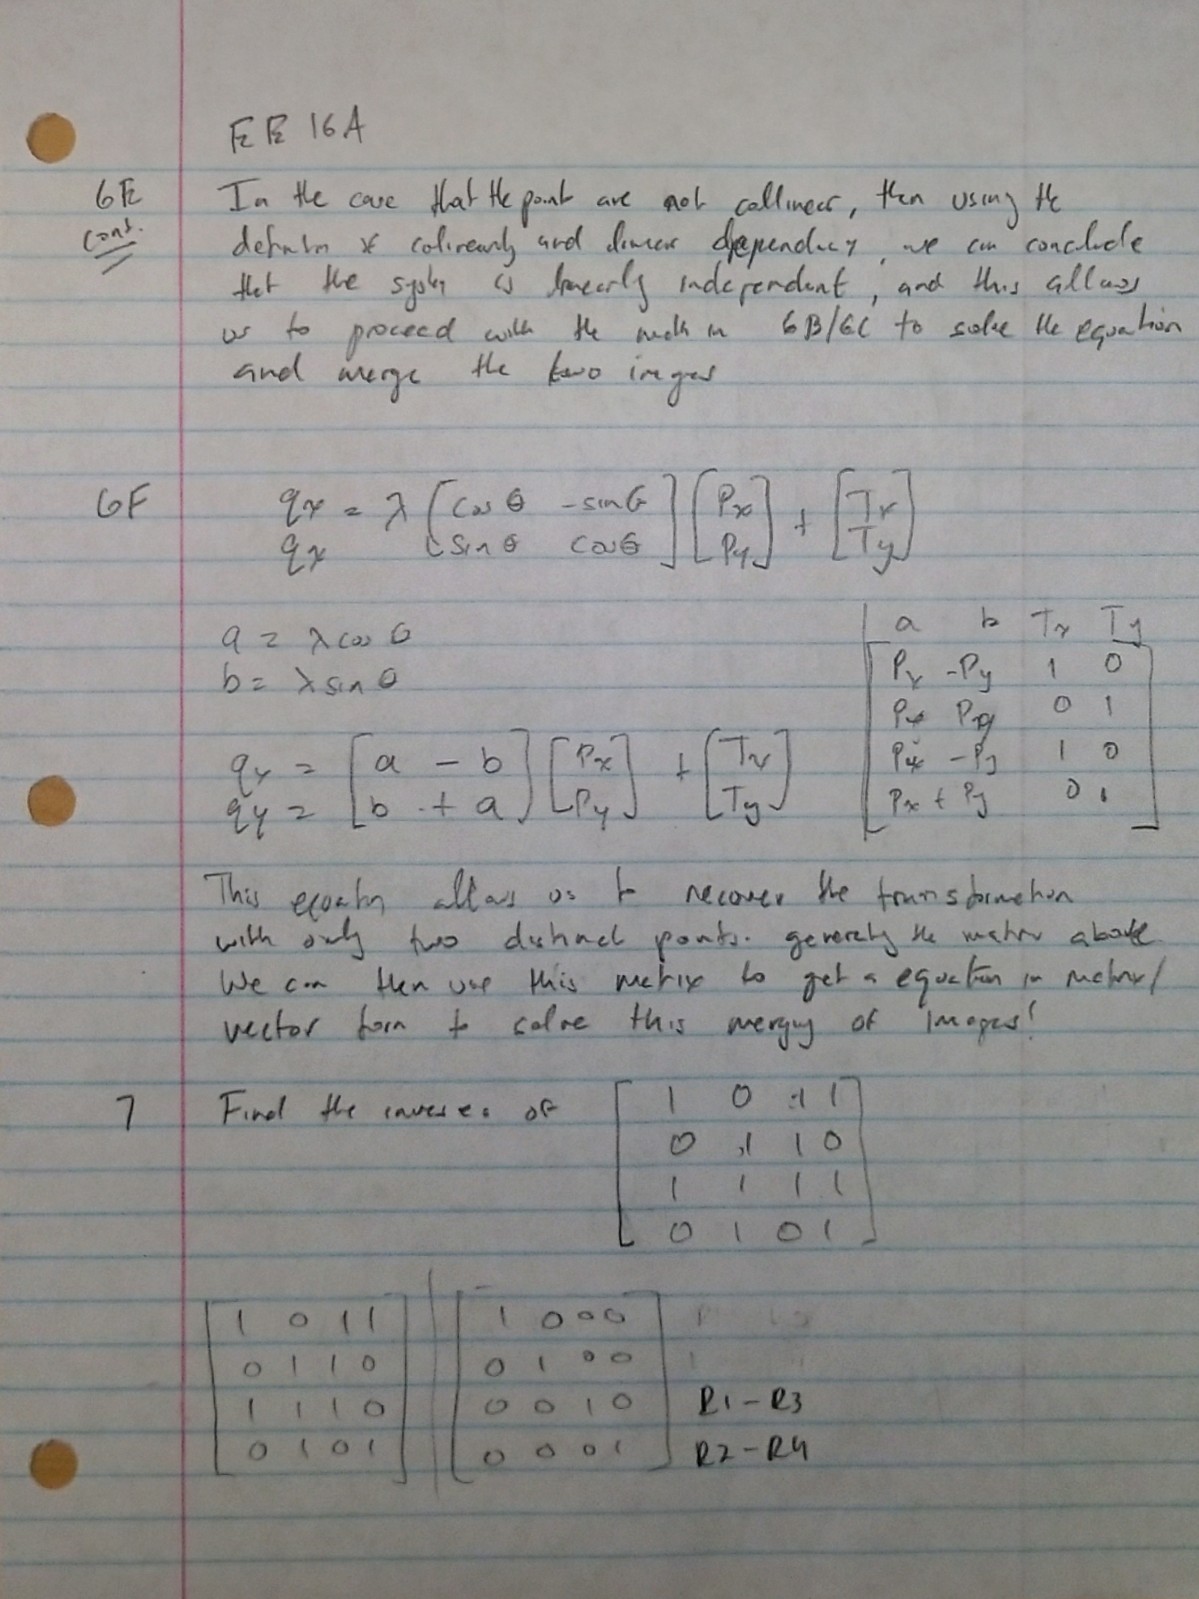 EE 16A
6E cont.
In the case that the point are not collinear, then using the
definitn of colinearity and linear dependency, we can conclude
that the system is linearly independent, and this allows
us to proceed with the math in 6B/6C to solve the equation
and merge the two images
6F
qx = λ [cos θ -sin θ] [Px] + [Tx]
qx [sin θ cos θ] [Py] [Ty]
a = λ cos θ
b = λ sin θ
a b Tx Ty
Px -Py 1 0
0 1
Px -Py 1 0
Px + Py 0 1
qx = [a - b] [Px] + [Tx]
qy = [b + a] [Py] [Ty]
This equation allows us to recover the transformation
with only two distinct points. generating the matrix above
We can then use this matrix to get a equation in matrix/
vector form to solve this merging of images!
7 Find the inverses of
1 0 1 1
0 1 1 0
1 1 1 1
0 1 0 1
1 0 1 1 | 1 0 0 0
0 1 1 0 | 0 1 0 0
1 1 1 0 | 0 0 1 0 R1-R3
0 1 0 1 | 0 0 0 1 R2-R4